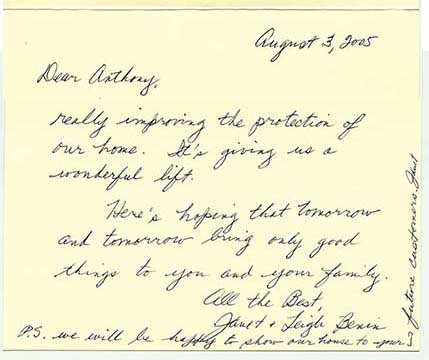 August 3, 2005
Dear Anthony,
really improving the protection of
our home. It's giving us a
wonderful lift.
Here's hoping that tomorrow
and tomorrow bring only good
things to you and your family.
All the Best,
Janet + Leigh Benin
P.S. we will be happy to show our house to your
future customers. Janet